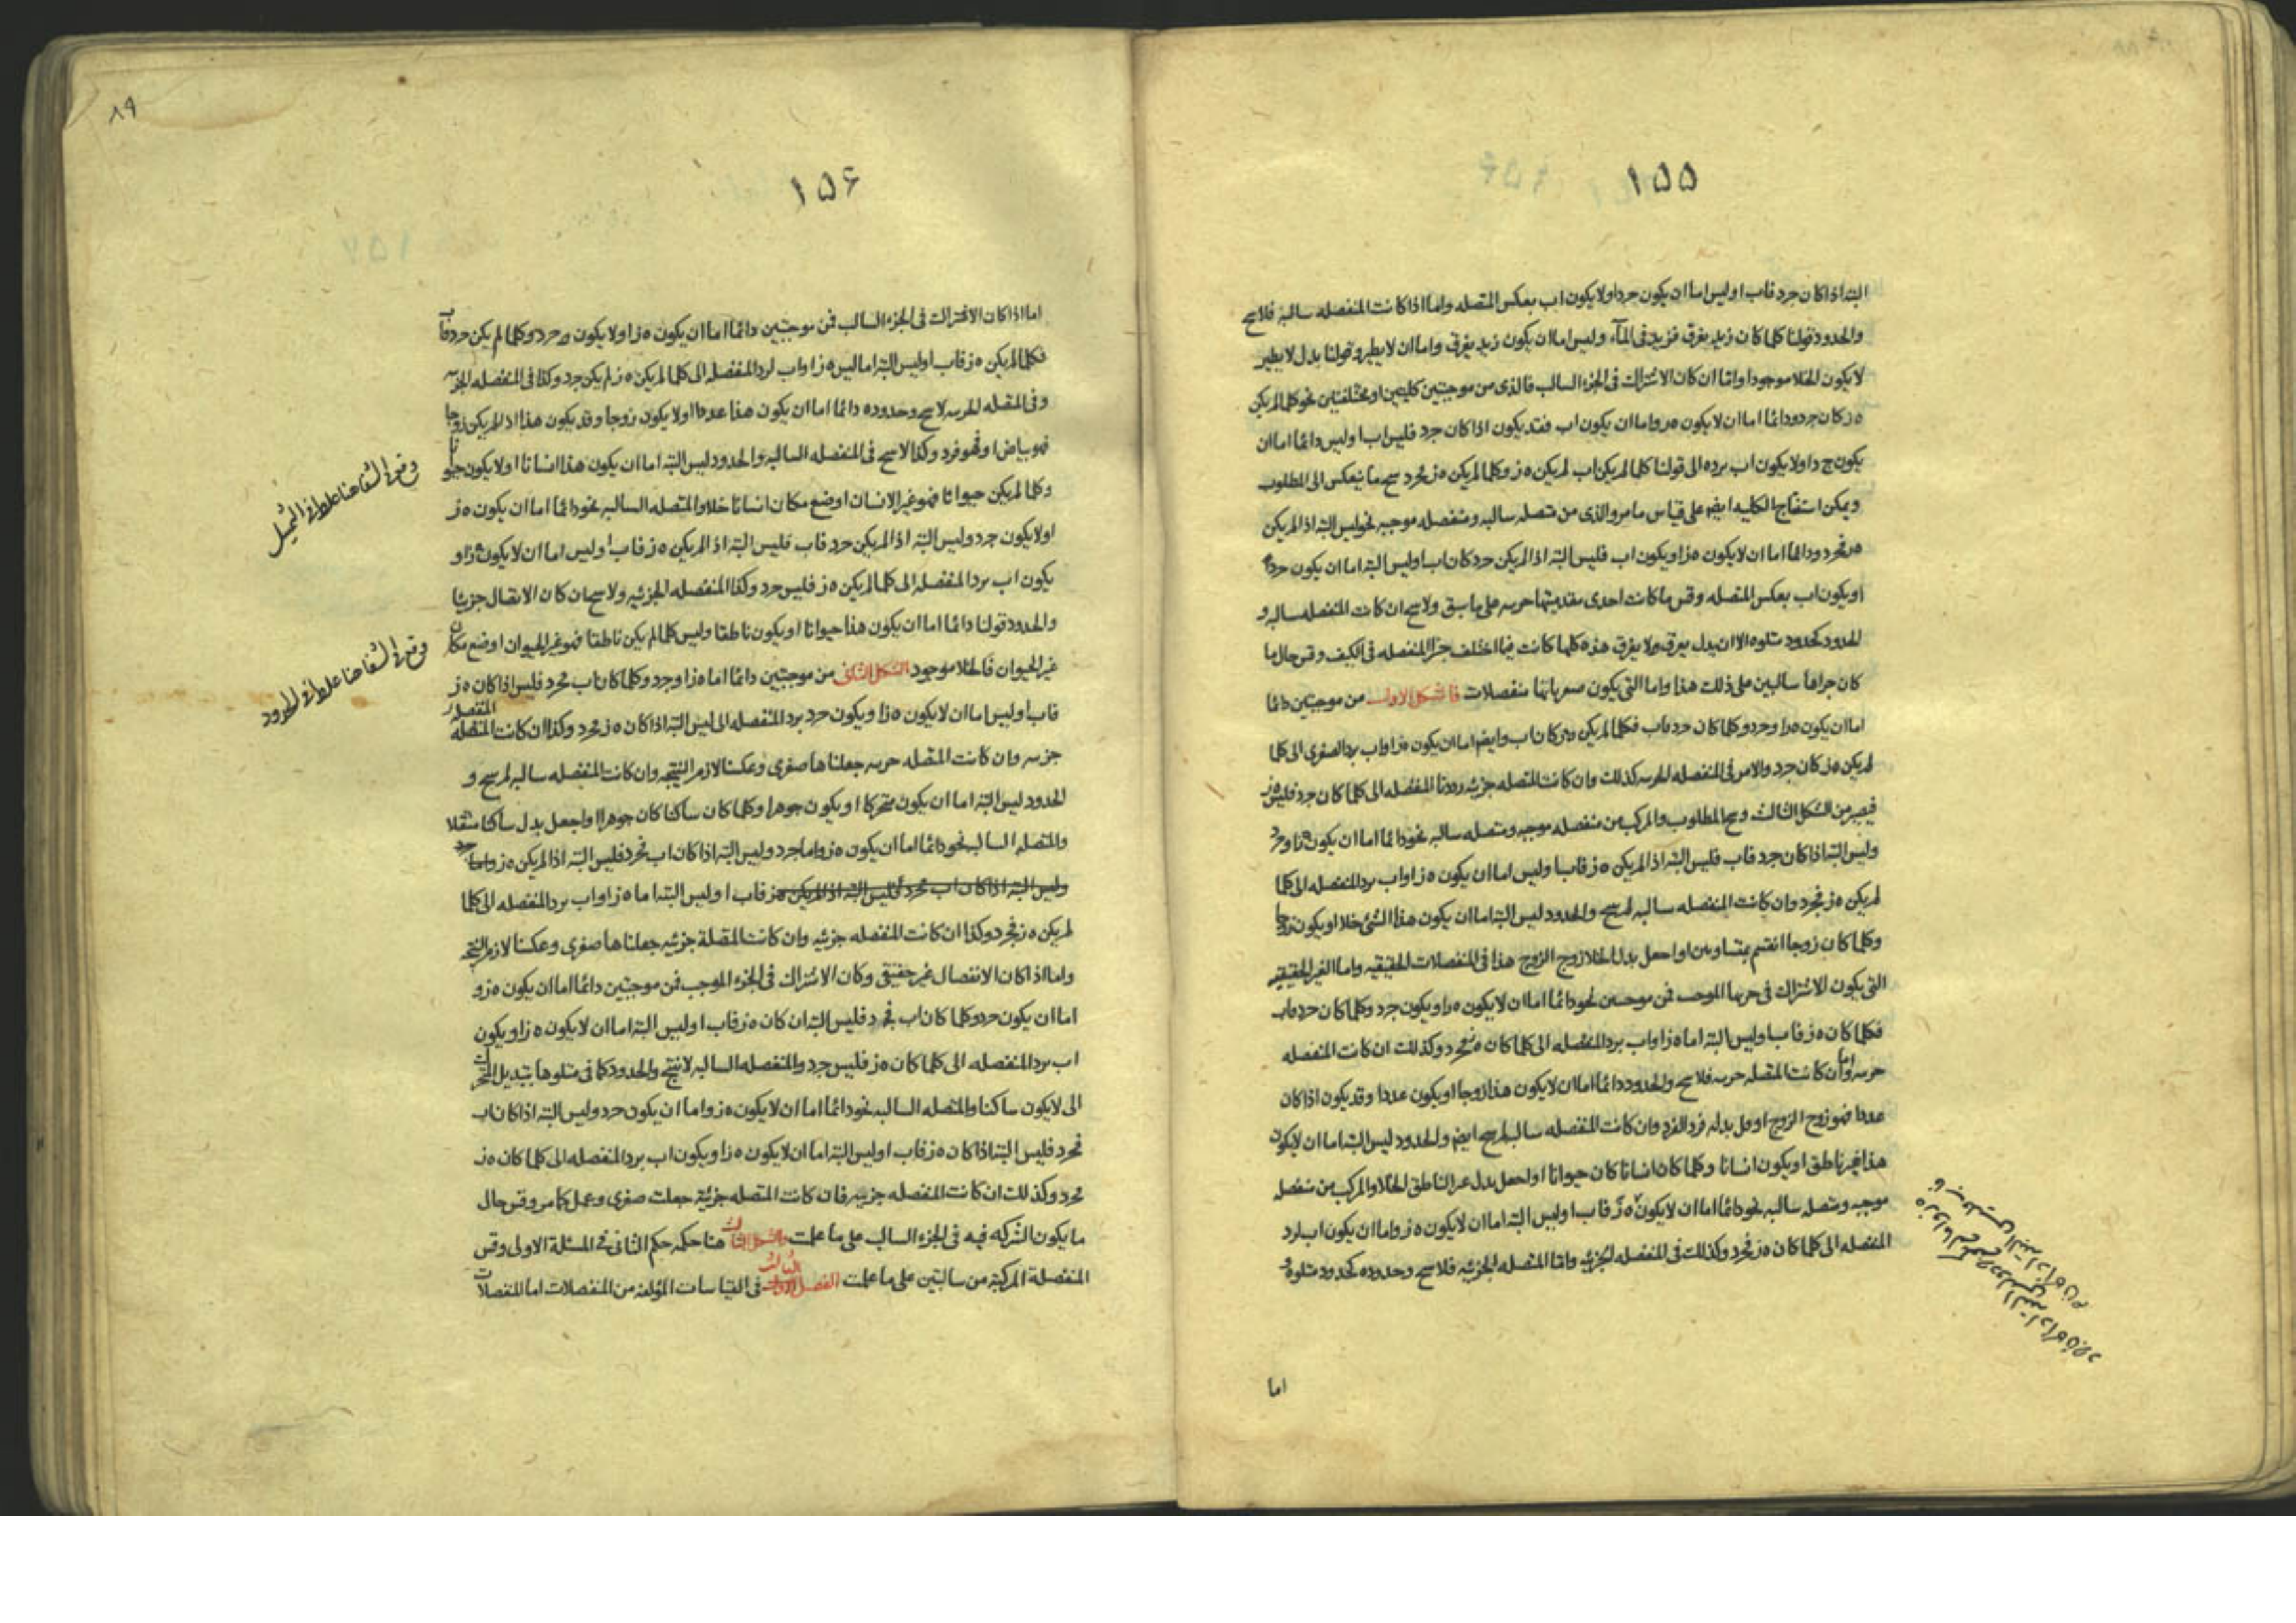 ١٥٥
البته اذا كان جرد فاب اوليس اما ان يكون جردا ولا يكون اب بعكس المتصله واما اذا كانت المنفصله سالبة فلا سح
والحدود قولنا كلما كان زيد يغرق فزيد فى المآء وليس اما ان يكون زيد يغرق واما ان لا يطير وقولنا بدل لا يطير
لا يكون الخلا موجودا واما ان كان الاشتراك فى الجزء السالب فالذى من موجبتين كليتين او مختلفتين نحو كلما لم يكن
ه ز كان جرد ودائما اما ان لا يكون واما ان يكون اب فقد يكون اذا كان جرد فليس اب اوليس دائما اما ان
يكون ج د اولا يكون اب برده الى قولنا كلما لم يكن اب لم يكن ه ز وكلما لم يكن ه ز فجرد سح ما ينعكس الى المطلوب
ويمكن استنتاج الكليه ايضا على قياس ما مر والذى من متصله سالبه ومنفصله موجبه نحو ليس البته اذا لم يكن
ه ز فجرد ودائما اما ان لا يكون ه ز او يكون اب فليس البته اذا لم يكن جرد كان اب اوليس البته اما ان يكون جرد
او يكون اب بعكس المتصله وقس ما كانت احدى مقدمتيها جزئيه على ما سبق ولا سح ان كانت المنفصله سالبه و
الحدود كحدود متلوه الا ان بدل يغرق ولا يغرق هذه كلها كانت فيما اختلف جزآ المنفصله فى الكيف وقس حال ما
كان جزآها سالبين على ذلك هذا واما التى يكون صغرياتها منفصلات فالشكل الاول من موجبتين دائما
اما ان يكون ه ز او جرد وكلما كان جرد فاب فكلما لم يكن ه ز كان اب وايضا اما ان يكون ه ز او اب برد الصغرى الى كلما
لم يكن ه ز كان جرد والامر فى المنفصله الجزئيه كذلك وان كانت المتصله جزئيه رددنا المنفصله الى كلما كان جرد فليس ه ز
فيصير من الشكل الثالث وسح المطلوب والمركب من منفصله موجبه ومتصله سالبه نحو دائما اما ان يكون ه ز او جرد
وليس البته اذا كان جرد فاب فليس البته اذا لم يكن ه ز فاب اوليس اما ان يكون ه ز او اب برد المنفصله الى كلما
لم يكن ه ز فجرد وان كانت المنفصله سالبه لم سح والحدود ليس البته اما ان يكون هذا الشئ خلا او يكون زوجا
وكلما كان زوجا انقسم بمتساويين او اجعل بدل الخلا زوج الزوج هذا فى المنفصلات الحقيقيه واما الغير الحقيقيه
التى يكون الاشتراك فى جزئها الموجب فمن موجبتين نحو دائما اما ان لا يكون ه ز او يكون جرد وكلما كان جرد فاب
فكلما كان ه ز فاب اوليس البته اما ه ز او اب برد المنفصله الى كلما كان ه ز فجرد وكذلك ان كانت المنفصله
جزئيه واما ان كانت المتصله جزئيه فلا سح والحدود دائما اما ان لا يكون هذا زوجا او يكون عددا وقد يكون اذا كان
عددا فهو زوج الزوج او قل بدله فرد الفرد وان كانت المنفصله سالبه لم سح ايضا والحدود ليس البته اما ان لا يكون
هذا غير ناطق او يكون انسانا وكلما كان انسانا كان حيوانا او اجعل بدل غير الناطق الخلا والمركب من منفصله
موجبه ومتصله سالبه نحو دائما اما ان لا يكون ه ز فاب اوليس البته اما ان لا يكون ه ز واما ان يكون اب لرد
المنفصله الى كلما كان ه ز فجرد وكذلك فى المنفصله الجزئيه واما المتصله الجزئيه فلا سح وحدوده كحدود متلوه
اما
٨٩
١٥۶
اما اذا كان الاشتراك فى الجزء السالب فمن موجبتين دائما اما ان يكون ه ز او لا يكون جرد وكلما لم يكن جرد فاب
فكلما لم يكن ه ز فاب اوليس البته اما ليس ه ز او اب لرد المنفصله الى كلما لم يكن ه ز لم يكن جرد وكذا فى المنفصله الجزئيه
وفى المتصله الجزئيه لا سح وحدوده دائما اما ان يكون هذا عددا اولا يكون زوجا وقد يكون هذا اذا لم يكن زوجا
فهو بياض او فهو فرد وكذا لا سح فى المنفصله السالبه والحدود ليس البته اما ان يكون هذا انسانا اولا يكون حيوانا
وكلما لم يكن حيوانا فهو غير الانسان اوضع مكان انسانا خلا والمتصله السالبه نحو دائما اما ان يكون ه ز
اولا يكون جرد وليس البته اذا لم يكن جرد فاب فليس البته اذا لم يكن ه ز فاب اوليس اما ان لا يكون ه ز او
يكون اب برد المنفصله الى كلما لم يكن ه ز فليس جرد وكذا المنفصله الجزئيه ولا سح ان كان الاتصال جزئيا
والحدود قولنا دائما اما ان يكون هذا حيوانا او يكون ناطقا وليس كلما لم يكن ناطقا فهو غير الحيوان اوضع مكان
غير الحيوان فالخلا موجود الشكل الثانى من موجبتين دائما اما ه ز او جرد وكلما كان اب فجرد فليس اذا كان ه ز
فاب اوليس اما ان لا يكون ه ز او يكون جرد برد المنفصله الى ليس البته اذا كان ه ز فجرد وكذا ان كانت المنفصله
جزئيه وان كانت المتصله جزئيه جعلناها صغرى وعكسنا لازم النتيجه وان كانت المنفصله سالبه لم سح و
الحدود ليس البته اما ان يكون متحركا او يكون جوهرا وكلما كان ساكنا كان جوهرا او اجعل بدل ساكنا منتقلا
والمتصله السالبه نحو دائما اما ان يكون ه ز واما جرد وليس البته اذا كان اب فجرد فليس البته اذا لم يكن ه ز
وليس البته اذا كان اب فجرد فليس البته اذا لم يكن ه ز فاب اوليس البته اما ه ز او اب برد المنفصله الى كلما
لم يكن ه ز فجرد وكذا ان كانت المنفصله جزئيه وان كانت المتصلة جزئيه جعلناها صغرى وعكسنا لازم النتيجه
واما اذا كان الانفصال غير حقيقى وكان الاشتراك فى الجزء الموجب فمن موجبتين دائما اما ان يكون ه ز و
اما ان يكون جرد وكلما كان اب فجرد فليس البته ان كان ه ز فاب اوليس البته اما ان لا يكون ه ز او يكون
اب برد المنفصله الى كلما كان ه ز فليس جرد والمنفصله السالبه لا تنتج والحدود كما فى متلوها بتبديل المتحرك
الى لا يكون ساكنا والمتصله السالبه نحو دائما اما ان لا يكون ه ز واما ان يكون جرد وليس البته اذا كان اب
فجرد فليس البته اذا كان ه ز فاب اوليس البته اما ان لا يكون ه ز او يكون اب برد المنفصله الى كلما كان ه ز
فجرد وكذلك ان كانت المنفصله جزئيه فان كانت المتصله جزئية جعلت صغرى وعمل كما مر وقس حال
ما يكون الشركه فيه فى الجزء السالب على ما علمت والشكل الثالث هنا حكمه حكم الثانى فى المسئلة الاولى وقس
المنفصلة المركبة من سالبتين على ما علمت الفصل الثالث فى القياسات المؤلفه من المنفصلات اما المنفصلات
وقع فى الشفا هنا غلط فى التمثيل
وقع فى الشفا هنا غلط فى الحدود